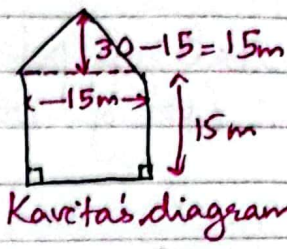 30-15=15m
15m
15m
Kavita's diagram